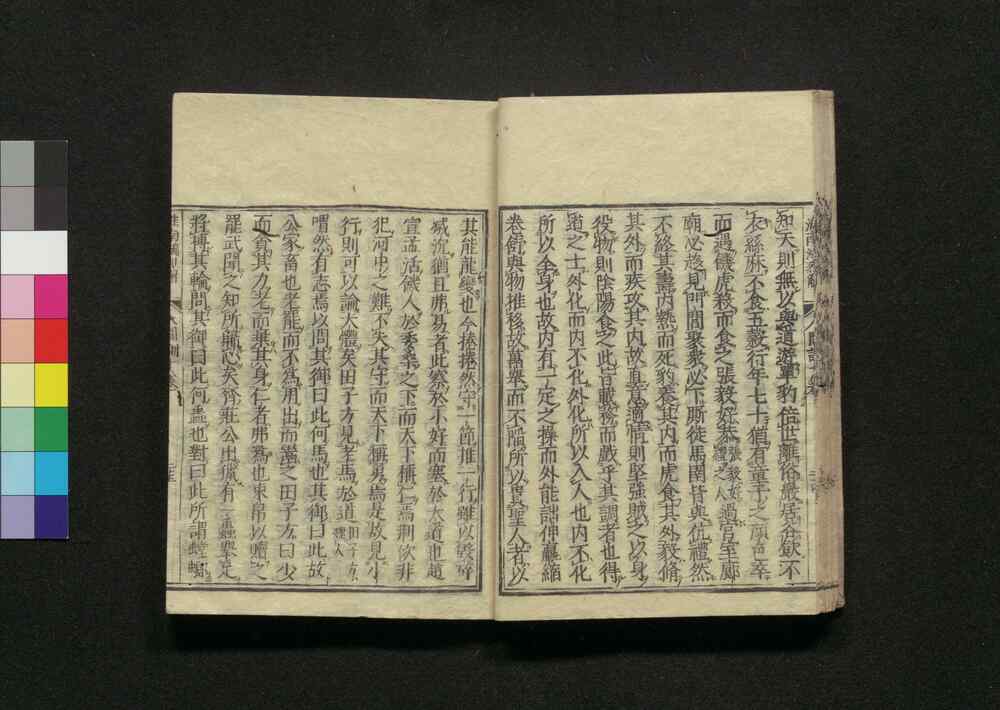 知天則無以與道遊單豹倍世離俗巖居谷飲不
衣絲麻不食五穀行年七十猶有童子之顏色卒
而遇饑虎殺而食之張毅好恭張毅好禮之人過宮室廊
廟必趨見門閭聚衆必下厮徒馬圉皆與伉禮然
不終其壽內熱而死豹養其內而虎食其外毅脩
其外而疾攻其內故直意適情則堅強賊之以身
役物則陰陽食之此皆載務而戲乎其調者也得
道之士外化而內不化外化所以入人也內不化
所以全身也故內有一定之操而外能詘伸贏縮
卷舒與物推移故萬舉而不陷所以貴聖人者以
其能龍變也今捲捲然守一節推一行雖以毀碎
滅沈猶且弗易者此察於小好而塞於大道也趙
宣孟活饑人於委桑之下而天下稱仁焉荆佽非
犯河中之難不失其守而天下稱勇焉是故見小
行則可以論大體矣田子方見老馬於道田子方魏人
喟然有志焉以問其御曰此何馬也其御曰此故
公家畜也老罷而不爲用出而鬻之田子方曰少
而貪其力老而棄其身仁者弗爲也束帛以贖之
罷武聞之知所歸心矣齊莊公出獵有一蟲舉足
將搏其輪問其御曰此何蟲也對曰此所謂螳螂